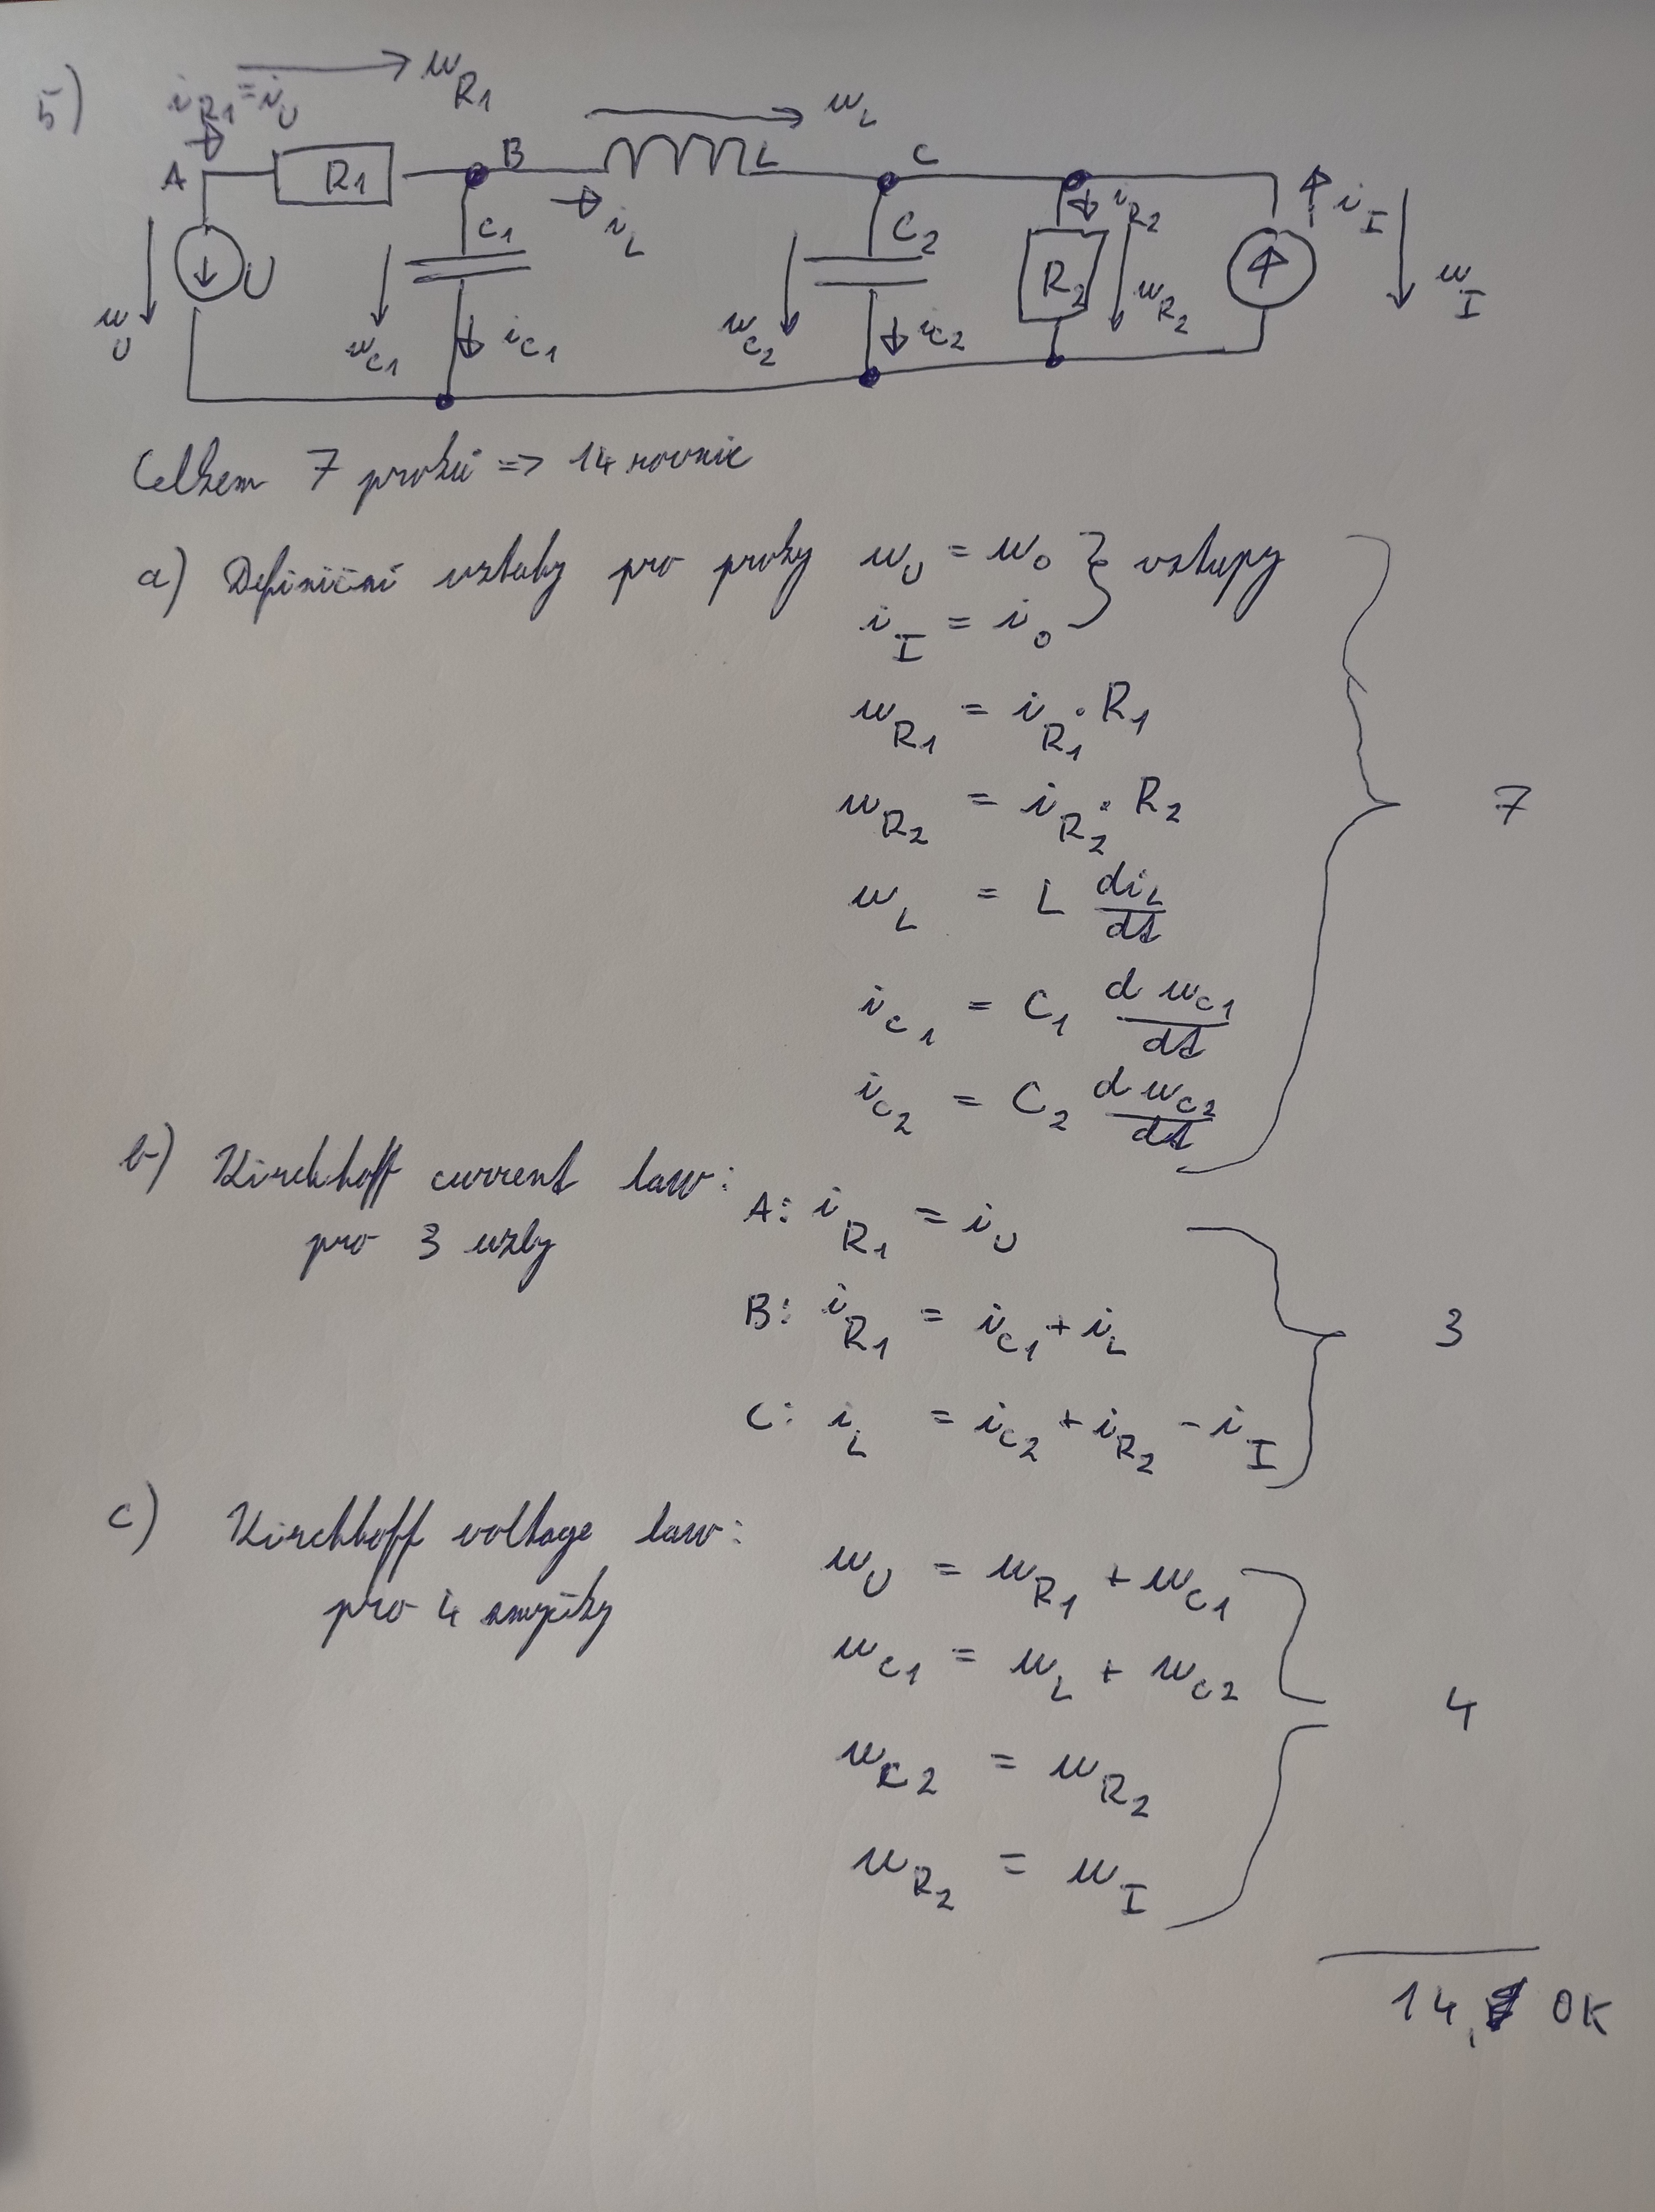 5)
i_R1 = i_U
u_R1
u_L
A R1 B L C
i_L
C1 C2 i_R2 i_I
U R2
u_U u_C1 i_C1 u_C2 i_C2 u_R2 u_I
Celkem 7 prvků => 14 rovnic
a) Definiční vztahy pro prvky u_U = u_0 } vstupy
i_I = i_0
u_R1 = i_R1 · R1
u_R2 = i_R2 · R2
7
u_L = L di_L/dt
i_C1 = C1 du_C1/dt
i_C2 = C2 du_C2/dt
b) Kirchhoff current law:
pro 3 uzly
A: i_R1 = i_U
B: i_R1 = i_C1 + i_L
3
C: i_L = i_C2 + i_R2 - i_I
c) Kirchhoff voltage law:
pro 4 smyčky
u_U = u_R1 + u_C1
u_C1 = u_L + u_C2
4
u_C2 = u_R2
u_R2 = u_I
14, OK